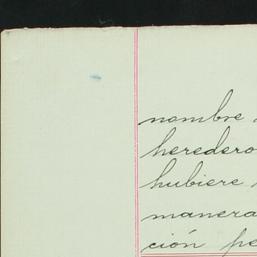 nombre
heredero
hubiere
manera
ción pe